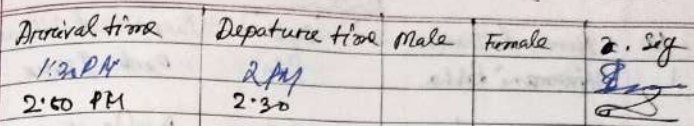 Arrival time Depature time Male Female r. Sig
1:30 PM 2 PM
2:00 PM 2:30